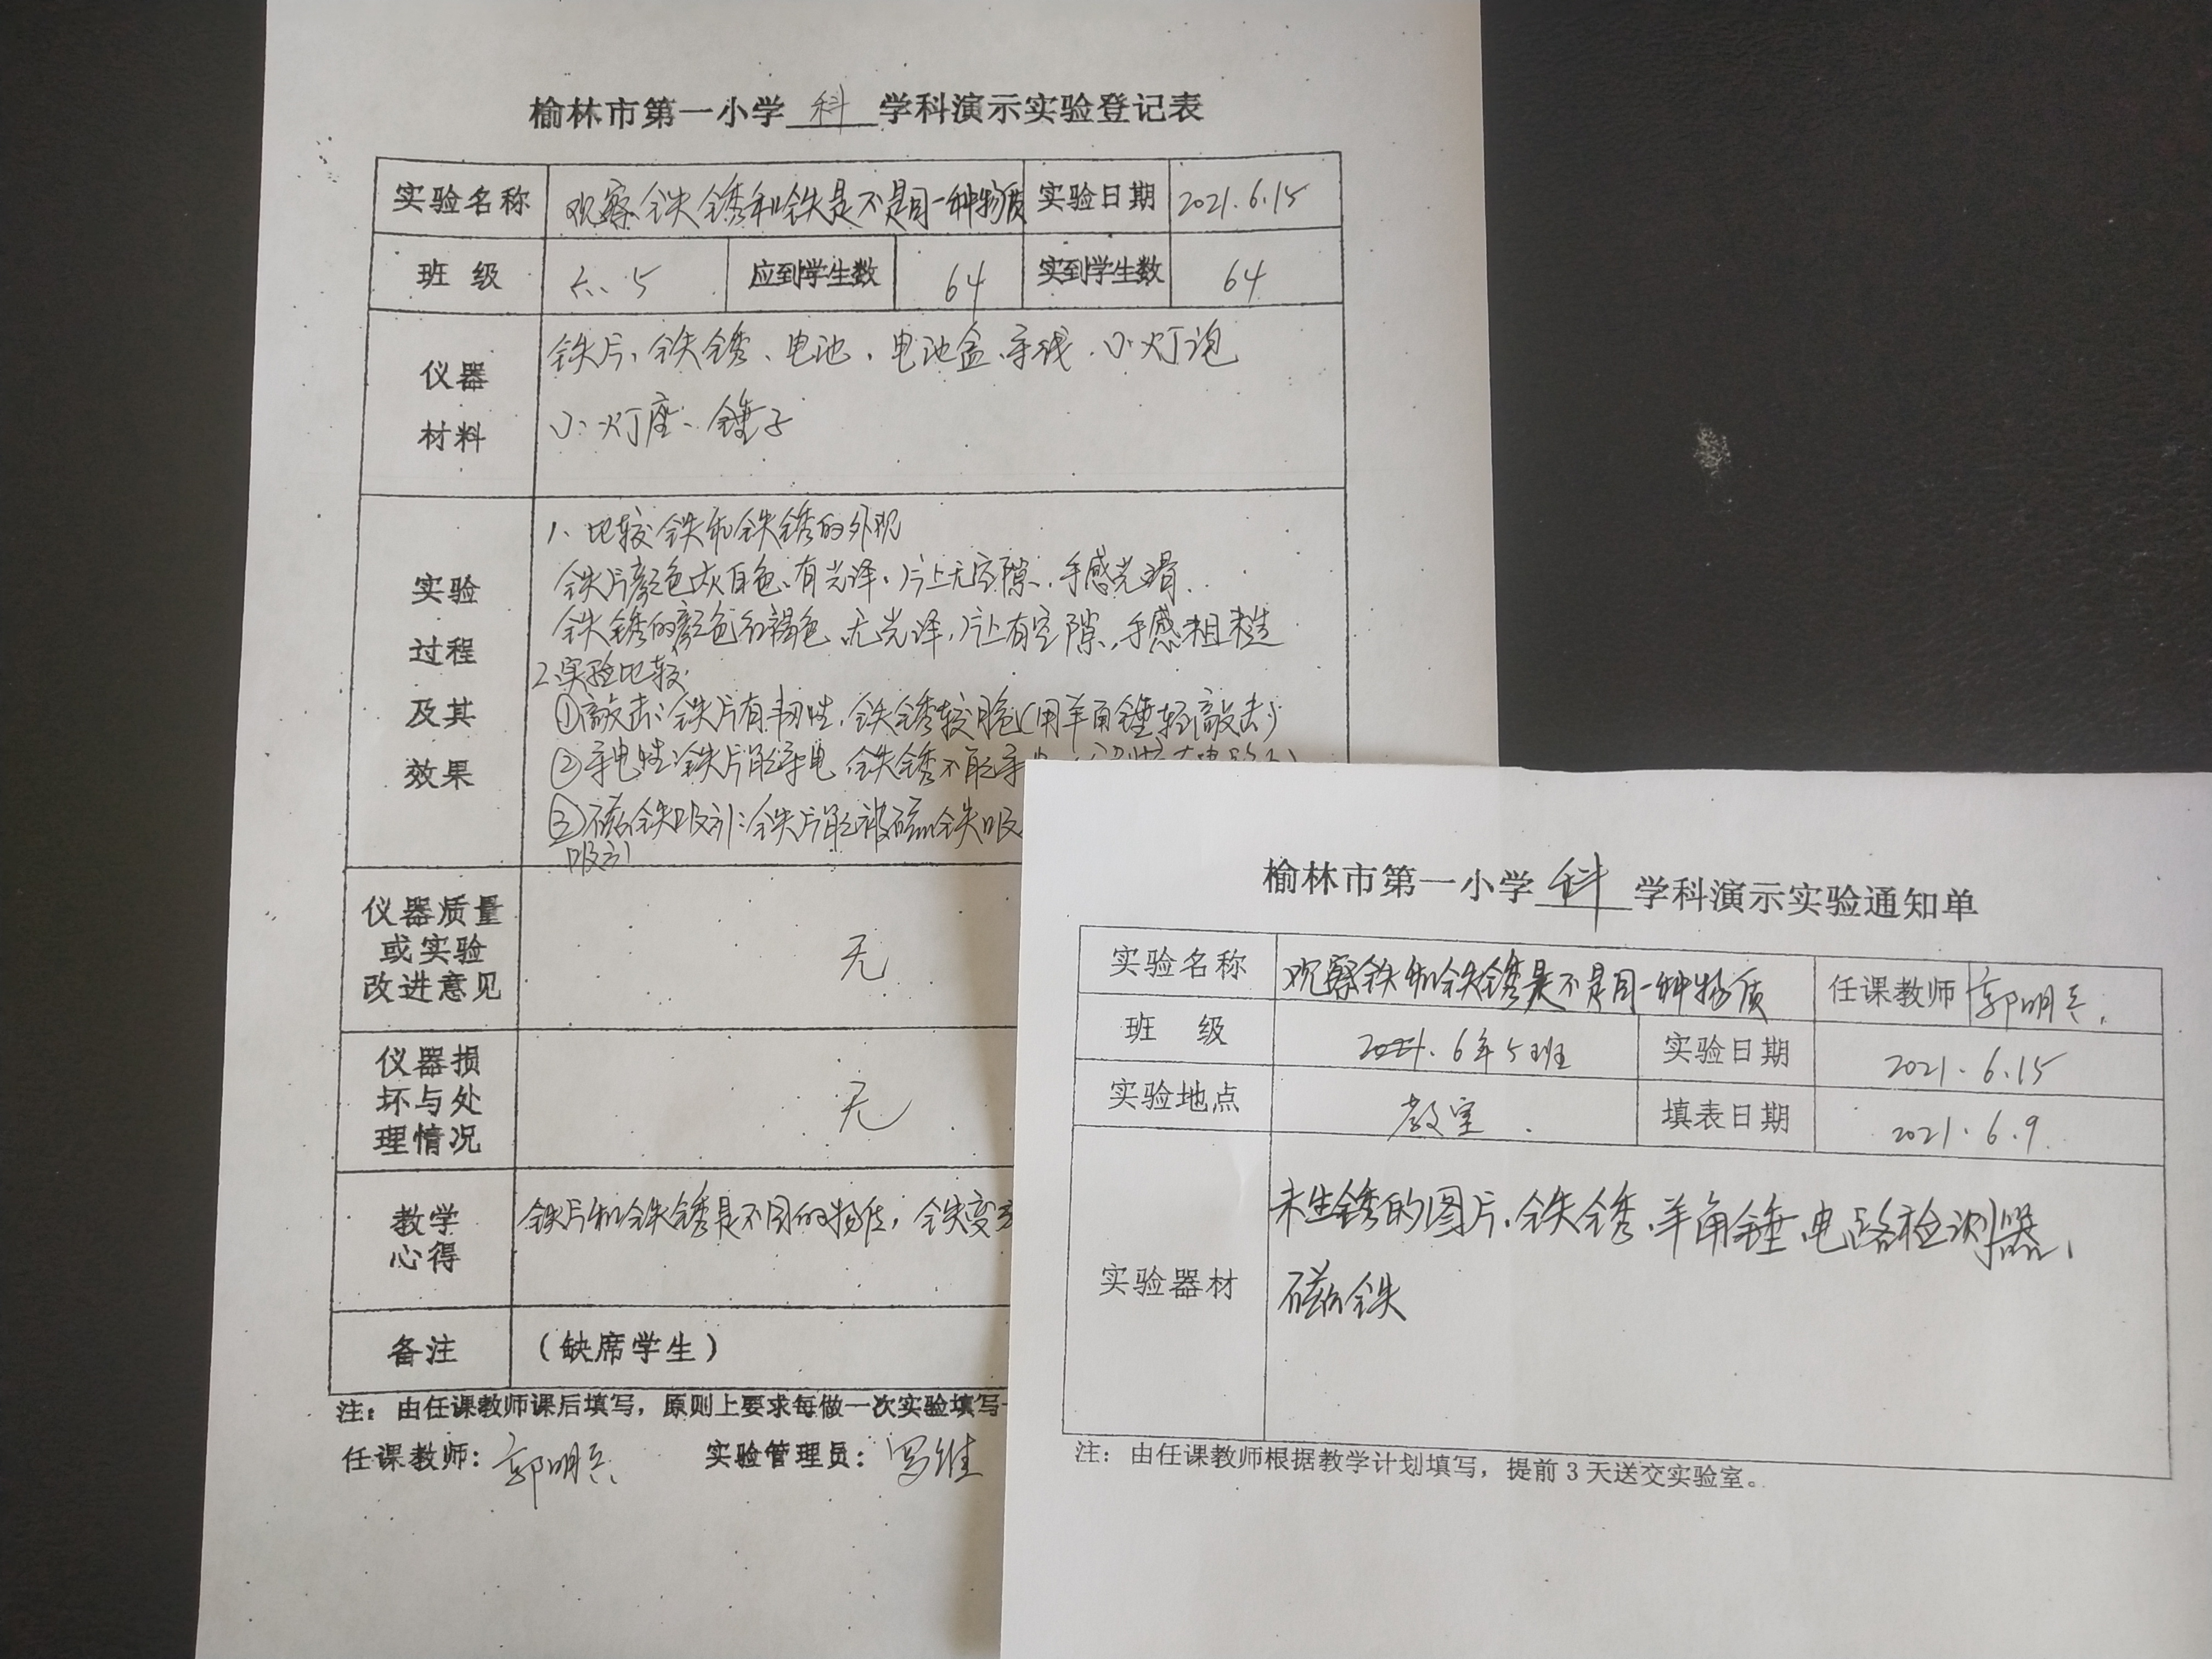 榆林市第一小学 科 学科演示实验登记表
实验名称 观察铁锈和铁是不是同一种物质 实验日期 2021.6.15
班 级 六、5 应到学生数 64 实到学生数 64
仪器
材料
铁片、铁锈、电池、电池盒、导线、小灯泡
小灯座、锤子
实验
过程
及其
效果
1、比较铁和铁锈的外观
铁片颜色灰白色、有光泽、片上无空隙、手感光滑.
铁锈的颜色红褐色、无光泽,片上有空隙、手感粗糙
2、实验比较
①敲击:铁片有韧性,铁锈较脆(用羊角锤轻敲击)
②导电性:铁片能导电,铁锈不能导
③磁铁吸引:铁片能被磁铁吸
吸引
仪器质量
或实验
改进意见
无
仪器损
坏与处
理情况
无
教学
心得
铁片和铁锈是不同的物质,铁变
备注 (缺席学生)
注:由任课教师课后填写,原则上要求每做一次实验填写一
任课教师:郭明兵 实验管理员:
榆林市第一小学 科 学科演示实验通知单
实验名称 观察铁和铁锈是不是同一种物质 任课教师 郭明兵.
班 级 2021. 6年5班 实验日期 2021.6.15
实验地点 教室. 填表日期 2021.6.9.
实验器材
未生锈的图片、铁锈、羊角锤、电路检测器、
磁铁
注:由任课教师根据教学计划填写,提前3天送交实验室。